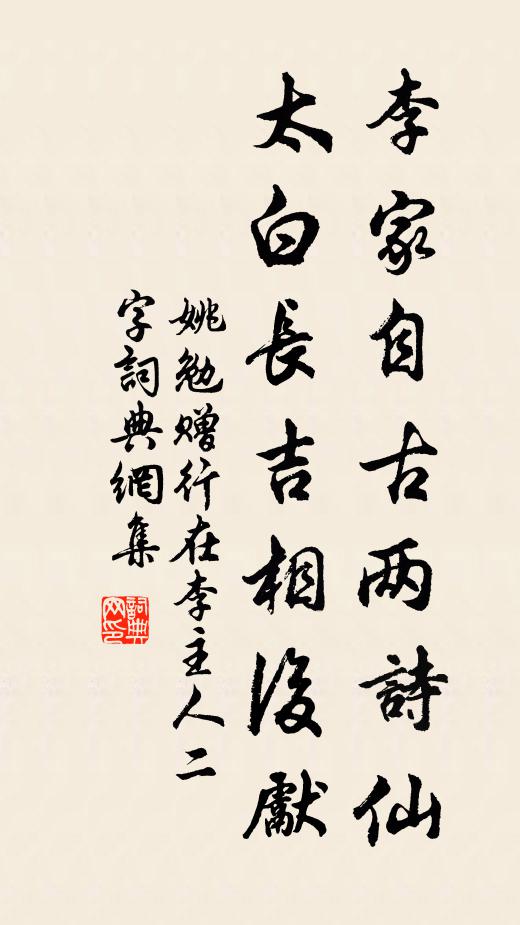 李家自古两詩仙
太白長吉相後獻
姚勉赠行在李主人二
字詞典網集
詞典
网印